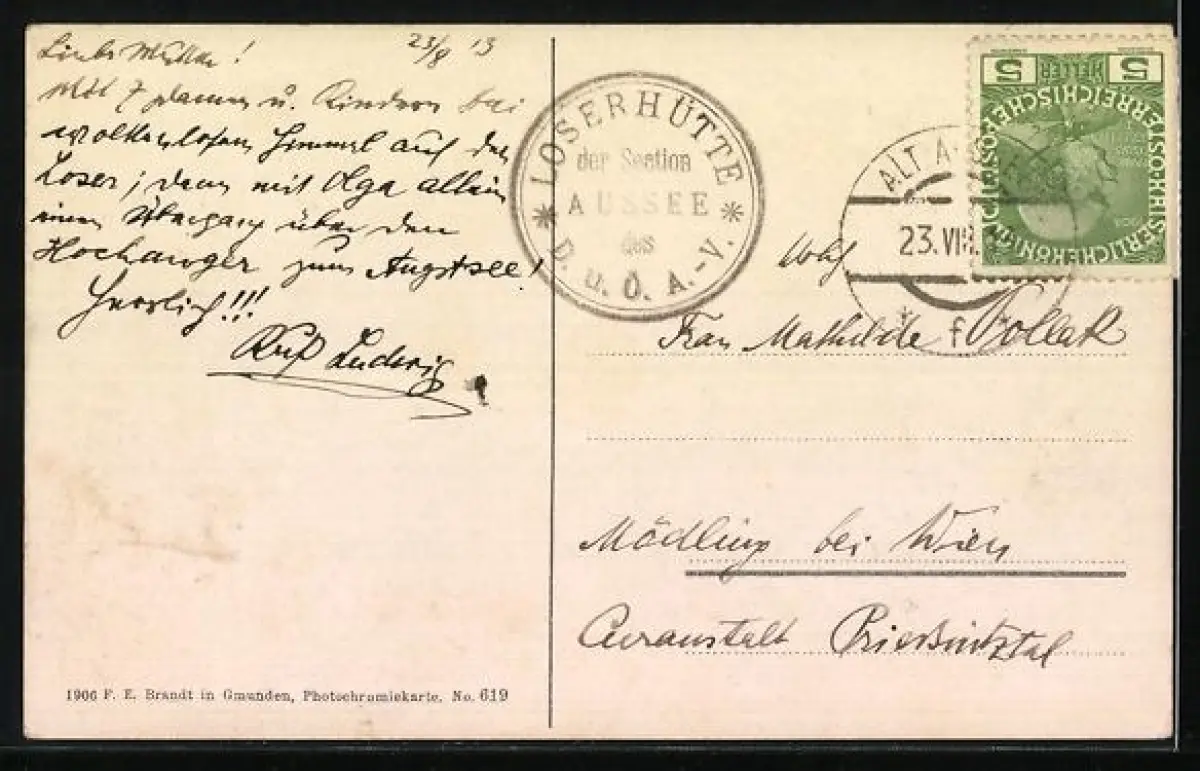 23/8 13
Liebe Mutter!
Mit 7 Damen u. Kindern bei
wolkenlosem Himmel auf den
Loser; dann mit Olga allein
einen Übergang über den
Hochanger zum Augstsee!
Herrlich!!!
Ludwig
LOSERHÜTTE
der Section
AUSSEE
des
D. u. Ö. A.-V.
ALT A
23.VIII
f
5 HELLER 5
KAISERLICHE KÖNIGLICHE ÖSTERREICHISCHE POST
Frau Mathilde Pollak
Mödling bei Wien
Curanstalt Priessnitztal
1906 F. E. Brandt in Gmunden, Photochromiekarte. No. 619